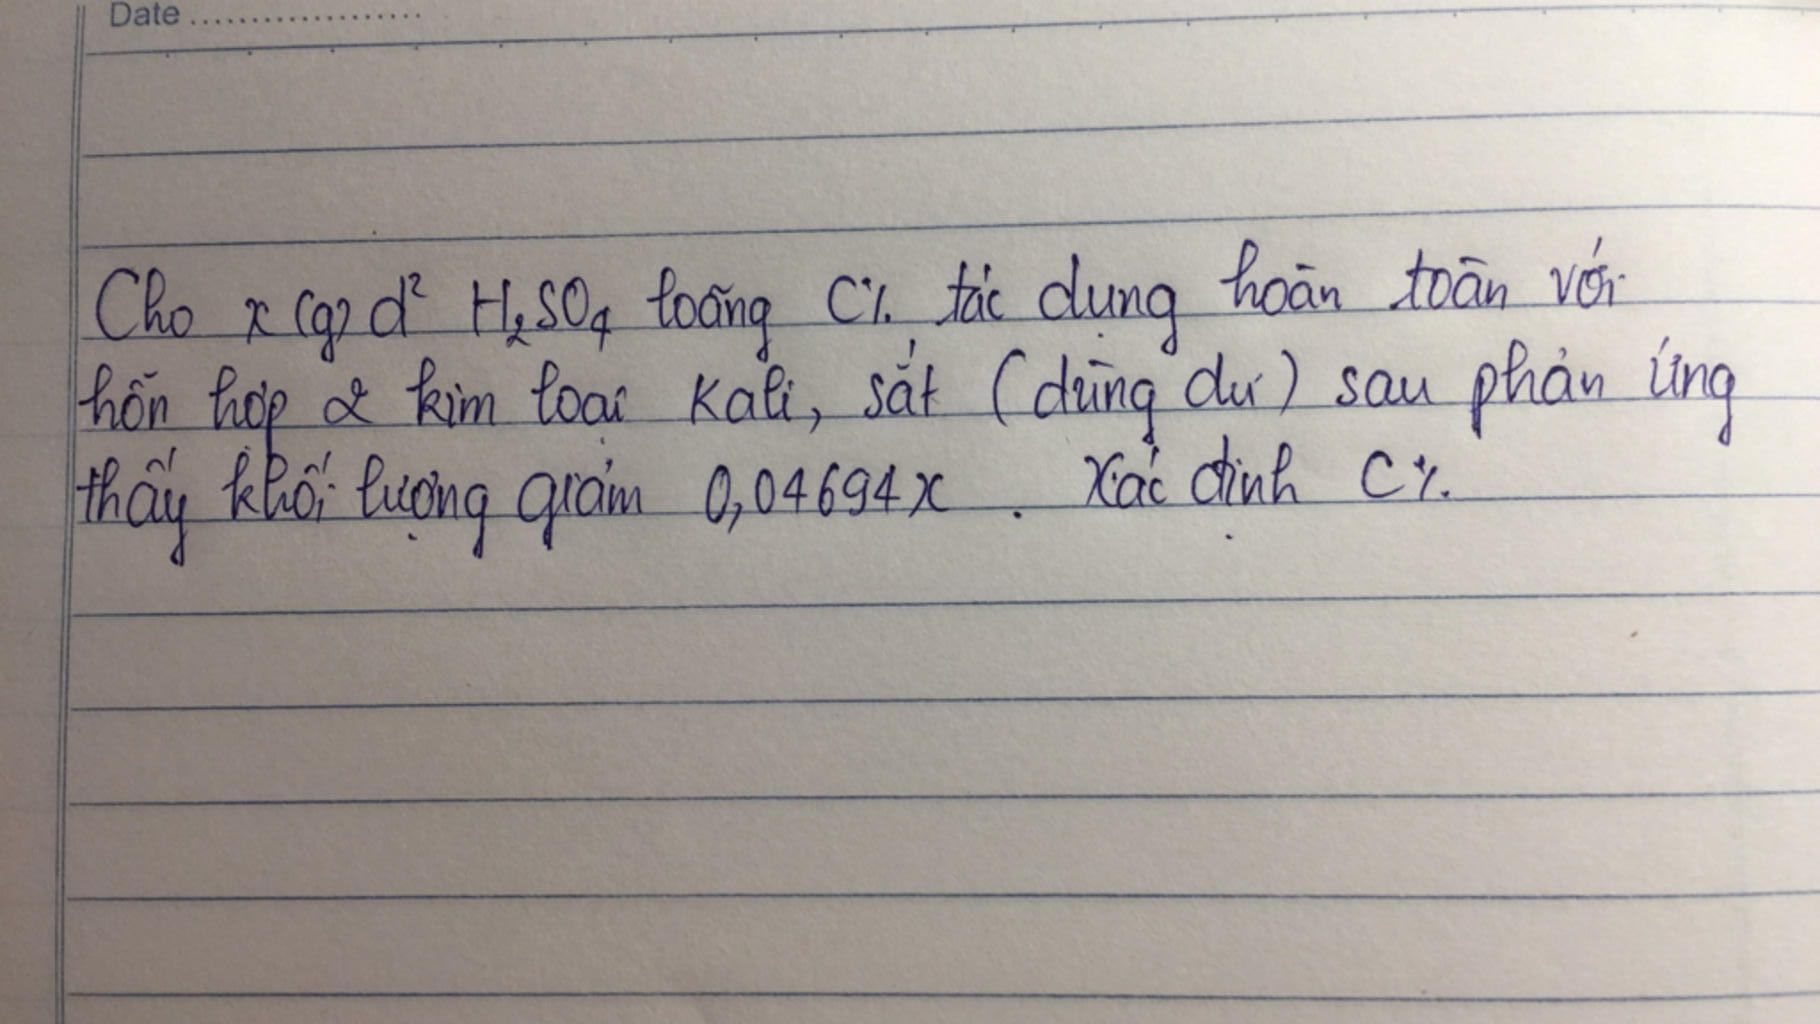 Date ....................
Cho x (g) d² H₂SO₄ loãng C% tác dụng hoàn toàn với
hỗn hợp 2 kim loại Kali, sắt (dùng dư) sau phản ứng
thấy khối lượng giảm 0,04694x . Xác định C%.